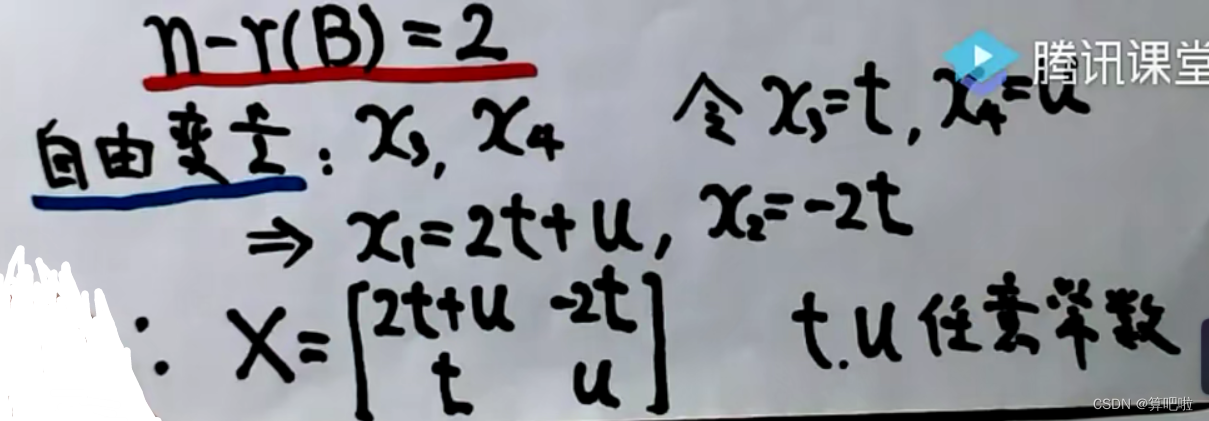 n-r(B)=2
腾讯课堂
自由变量: x₃, x₄ 令 x₃=t, x₄=u
⇒ x₁=2t+u, x₂=-2t
∴ X=[2t+u -2t
t u] t.u 任意常数
CSDN @算吧啦